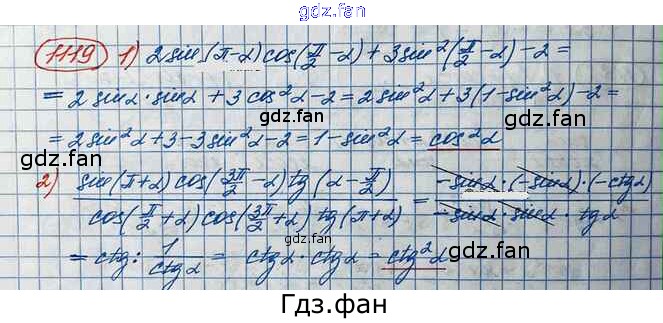 www
gdz.fan
1119 1) 2 sin(π-α) cos(π/2 -α) + 3 sin²(π/2 -α) - 2 =
= 2 sinα · sinα + 3 cos²α - 2 = 2 sin²α + 3(1 - sin²α) - 2 =
gdz.fan gdz.fan
= 2 sin²α + 3 - 3 sin²α - 2 = 1 - sin²α = cos²α
gdz.fan gdz.fan
2) sin(π+α) cos(3π/2 -α) tg(α - π/2) / cos(π/2 +α) cos(3π/2 +α) tg(π+α) = -sinα · (-sinα) · (-ctgα) / -sinα · sinα · tgα
= ctg : 1/ctgα = ctgα · ctgα = ctg²α
gdz.fan gdz.fan
Гдз.фан